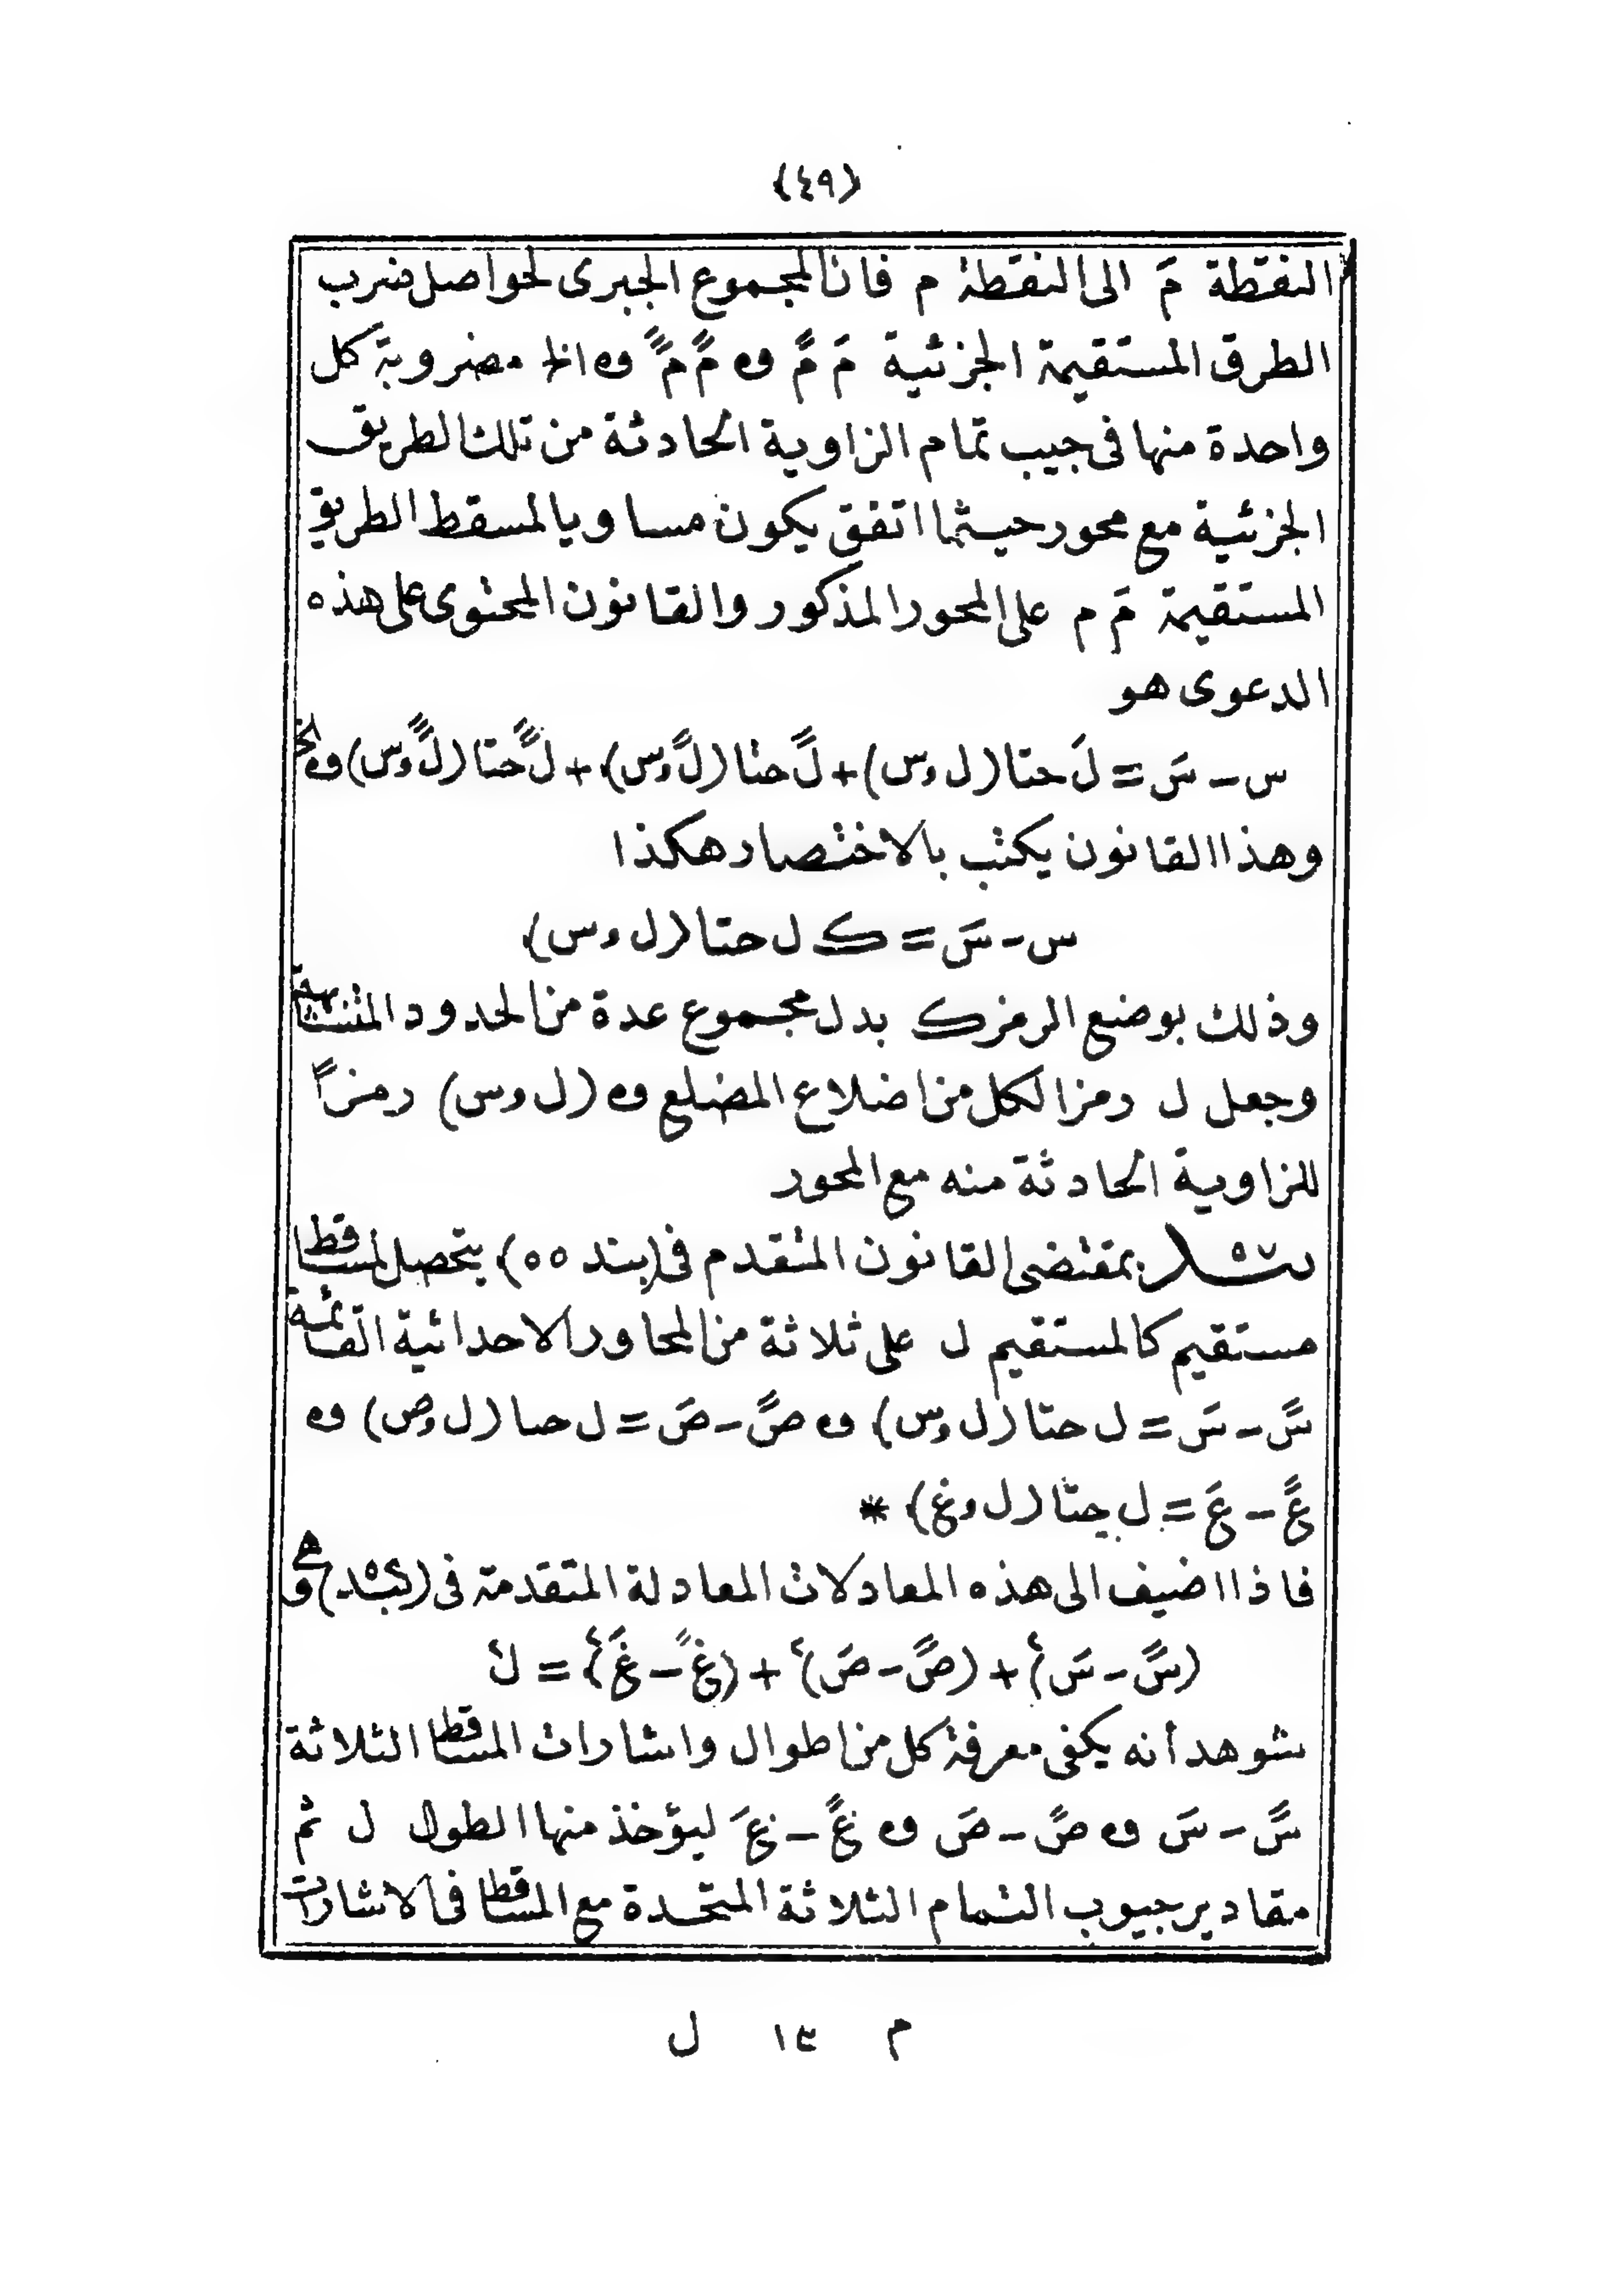 (٤٩)
النقطة مَ الى النقطة م فان المجموع الجبرى لحواصل ضرب
الطرق المستقيمة الجزئية مَ مً و مً مً و الخ مضروبة كل
واحدة منها فى جيب تمام الزاوية الحادثة من تلك الطريق
الجزئية مع محور حيثما اتفق يكون مساويا لمسقط الطريق
المستقيمة مَ م على المحور المذكور والقانون المحتوى على هذه
الدعوى هو
س - سَ = لَ حتا (ل و س) + لً حتا (لً و س) + لً حتا (لً و س) و الخ
وهذا القانون يكتب بالاختصار هكذا
س - سَ = ک ل حتا (ل و س)
وذلك بوضع الرمز ک بدل مجموع عدة من الحدود المتشابهة
وجعل ل رمزا لكل من اضلاع المضلع و (ل و س) رمزاً
للزاوية الحادثة منه مع المحور
بمقتضى القانون المتقدم فى (بند ٥٥) يتحصل لمساقط
مستقيم كالمستقيم ل على ثلاثة من المحاور الاحداثية القائمة
سً - سَ = ل حتا (ل و س) و صً - صَ = ل حتا (ل و ص) و
عً - عَ = ل حتا (ل و ع) *
فاذا اضيف الى هذه المعادلات المعادلة المتقدمة فى وهى
(سً - سَ)٢ + (صً - صَ)٢ + (عً - عَ)٢ = ل٢
شوهد أنه يكفى معرفة كل من اطوال واشارات المساقط الثلاثة
سً - سَ و صً - صَ و عً - عَ ليؤخذ منها الطول ل ثم
مقادير جيوب التمام الثلاثة المتحدة مع المساقط فى الاشارات
م ١٣ ل